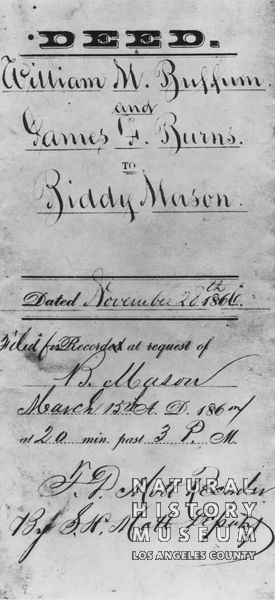 DEED.
William M. Buffum
and
James F. Burns.
TO
Biddy Mason.
Dated November 28th 1866.
Filed for Recorded at request of
B. Mason
March 15th A. D. 1867
at 20 min. past 3 P. M.
Recorder
By J. W. Mott Deputy
NATURAL
HISTORY
MUSEUM
LOS ANGELES COUNTY